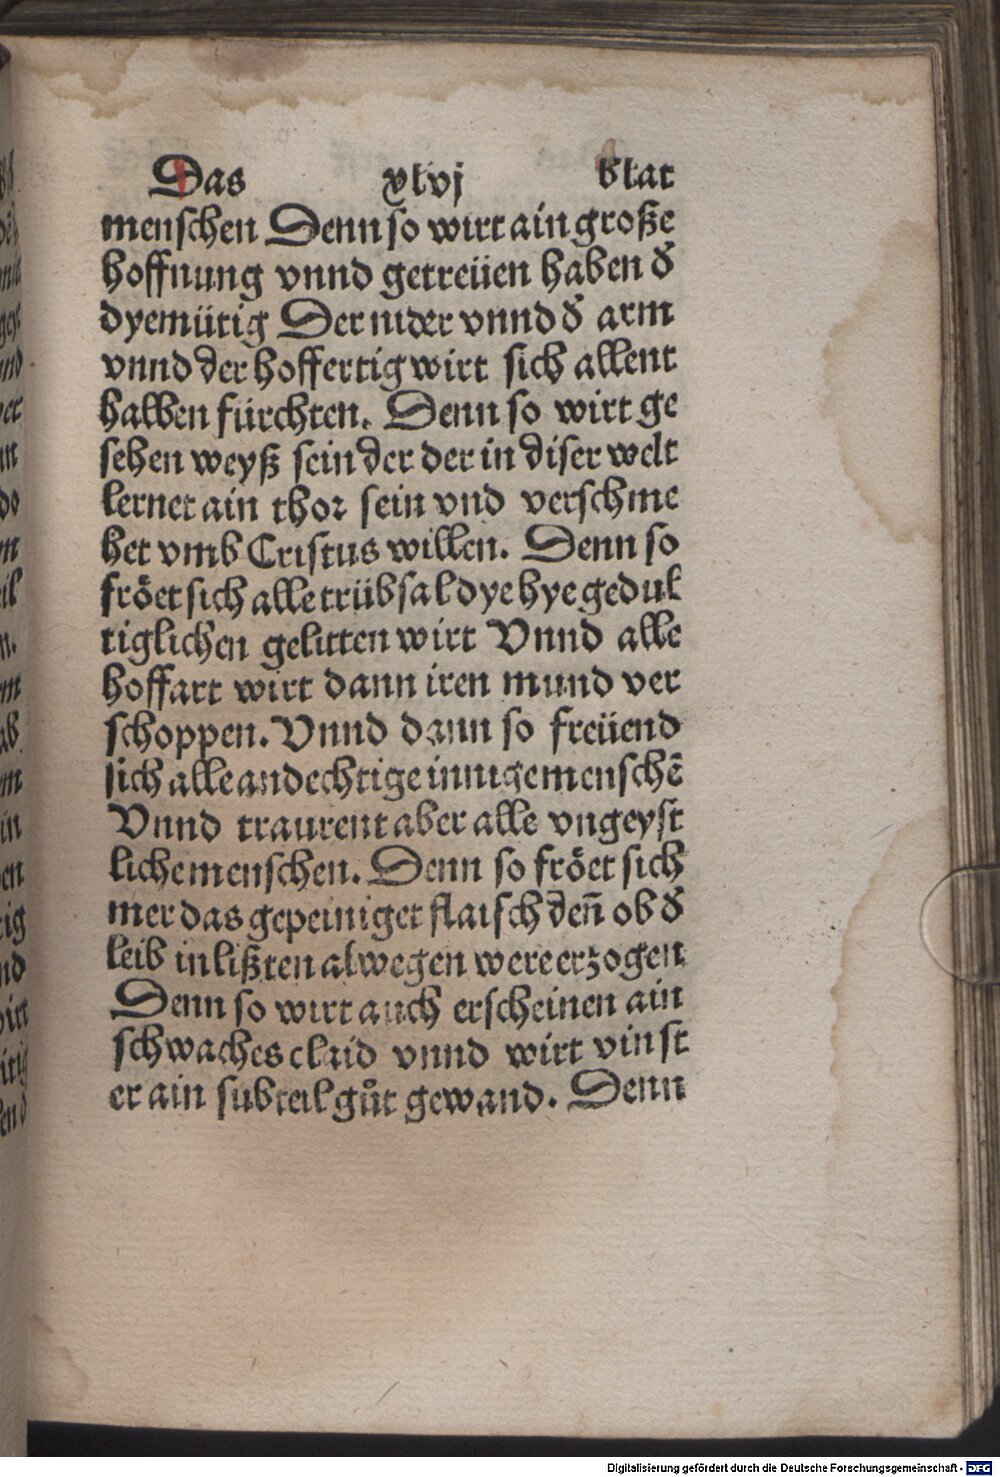 Das xlvj blat
menschen Denn so wirt ain große
hoffnung vnnd getreüen haben d̕
dyemütig Der nider vnnd d̕ arm
vnnd der hoffertig wirt sich allent
halben fürchten. Denn so wirt ge
sehen weyß sein der der in diser welt
lernet ain thor sein vnd verschme
het vmb Cristus willen. Denn so
fröet sich alle trübsal dye hye gedul
tiglichen gelitten wirt Vnnd alle
hoffart wirt dann iren mund ver
schoppen. Vnnd dann so freüend
sich alle andechtige innige menschē
Vnnd traurent aber alle vngeyst
liche menschen. Denn so fröet sich
mer das gepeiniget flaisch den̄ ob d̕
leib in lißten alwegen were erzogen
Denn so wirt auch erscheinen ain
schwaches claid vnnd wirt vinst
er ain subteil gůt gewand. Denn
Digitalisierung gefördert durch die Deutsche Forschungsgemeinschaft - DFG